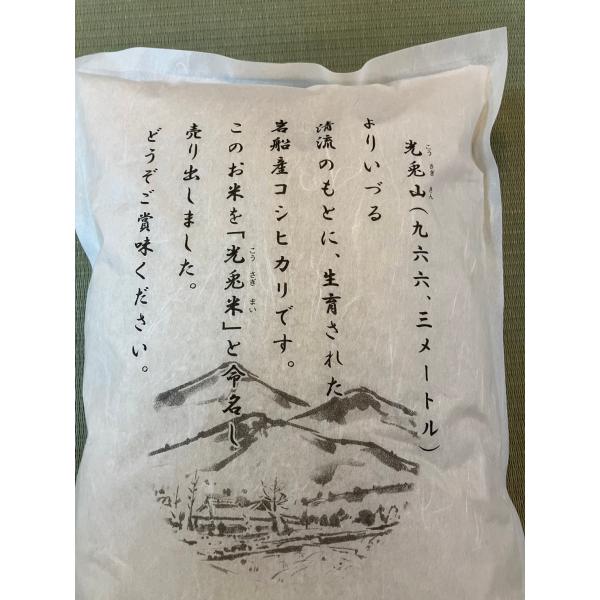 光兎山（九六六、三メートル）
こう さぎ さん
よりいづる
清流のもとに、生育された
岩船産コシヒカリです。
このお米を「光兎米」と命名し
こう さぎ まい
売り出しました。
どうぞご賞味ください。